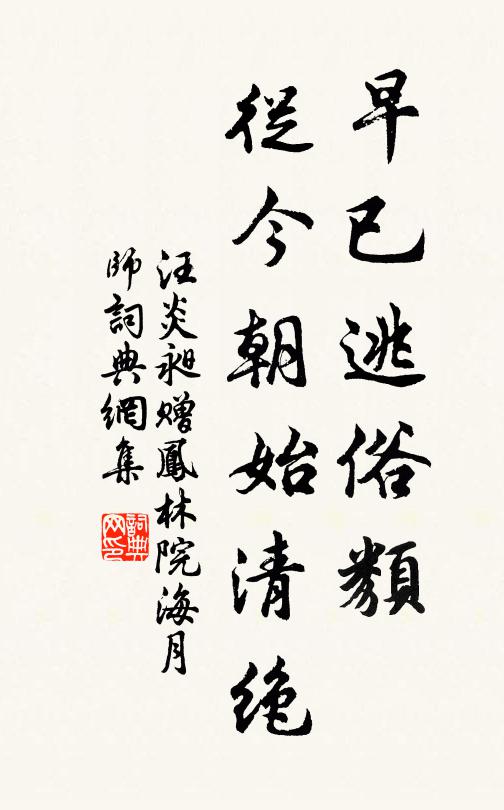 早已逃俗類
從今朝始清絶
汪炎昶贈鳳林院海月
師詞典網集
詞典
网印